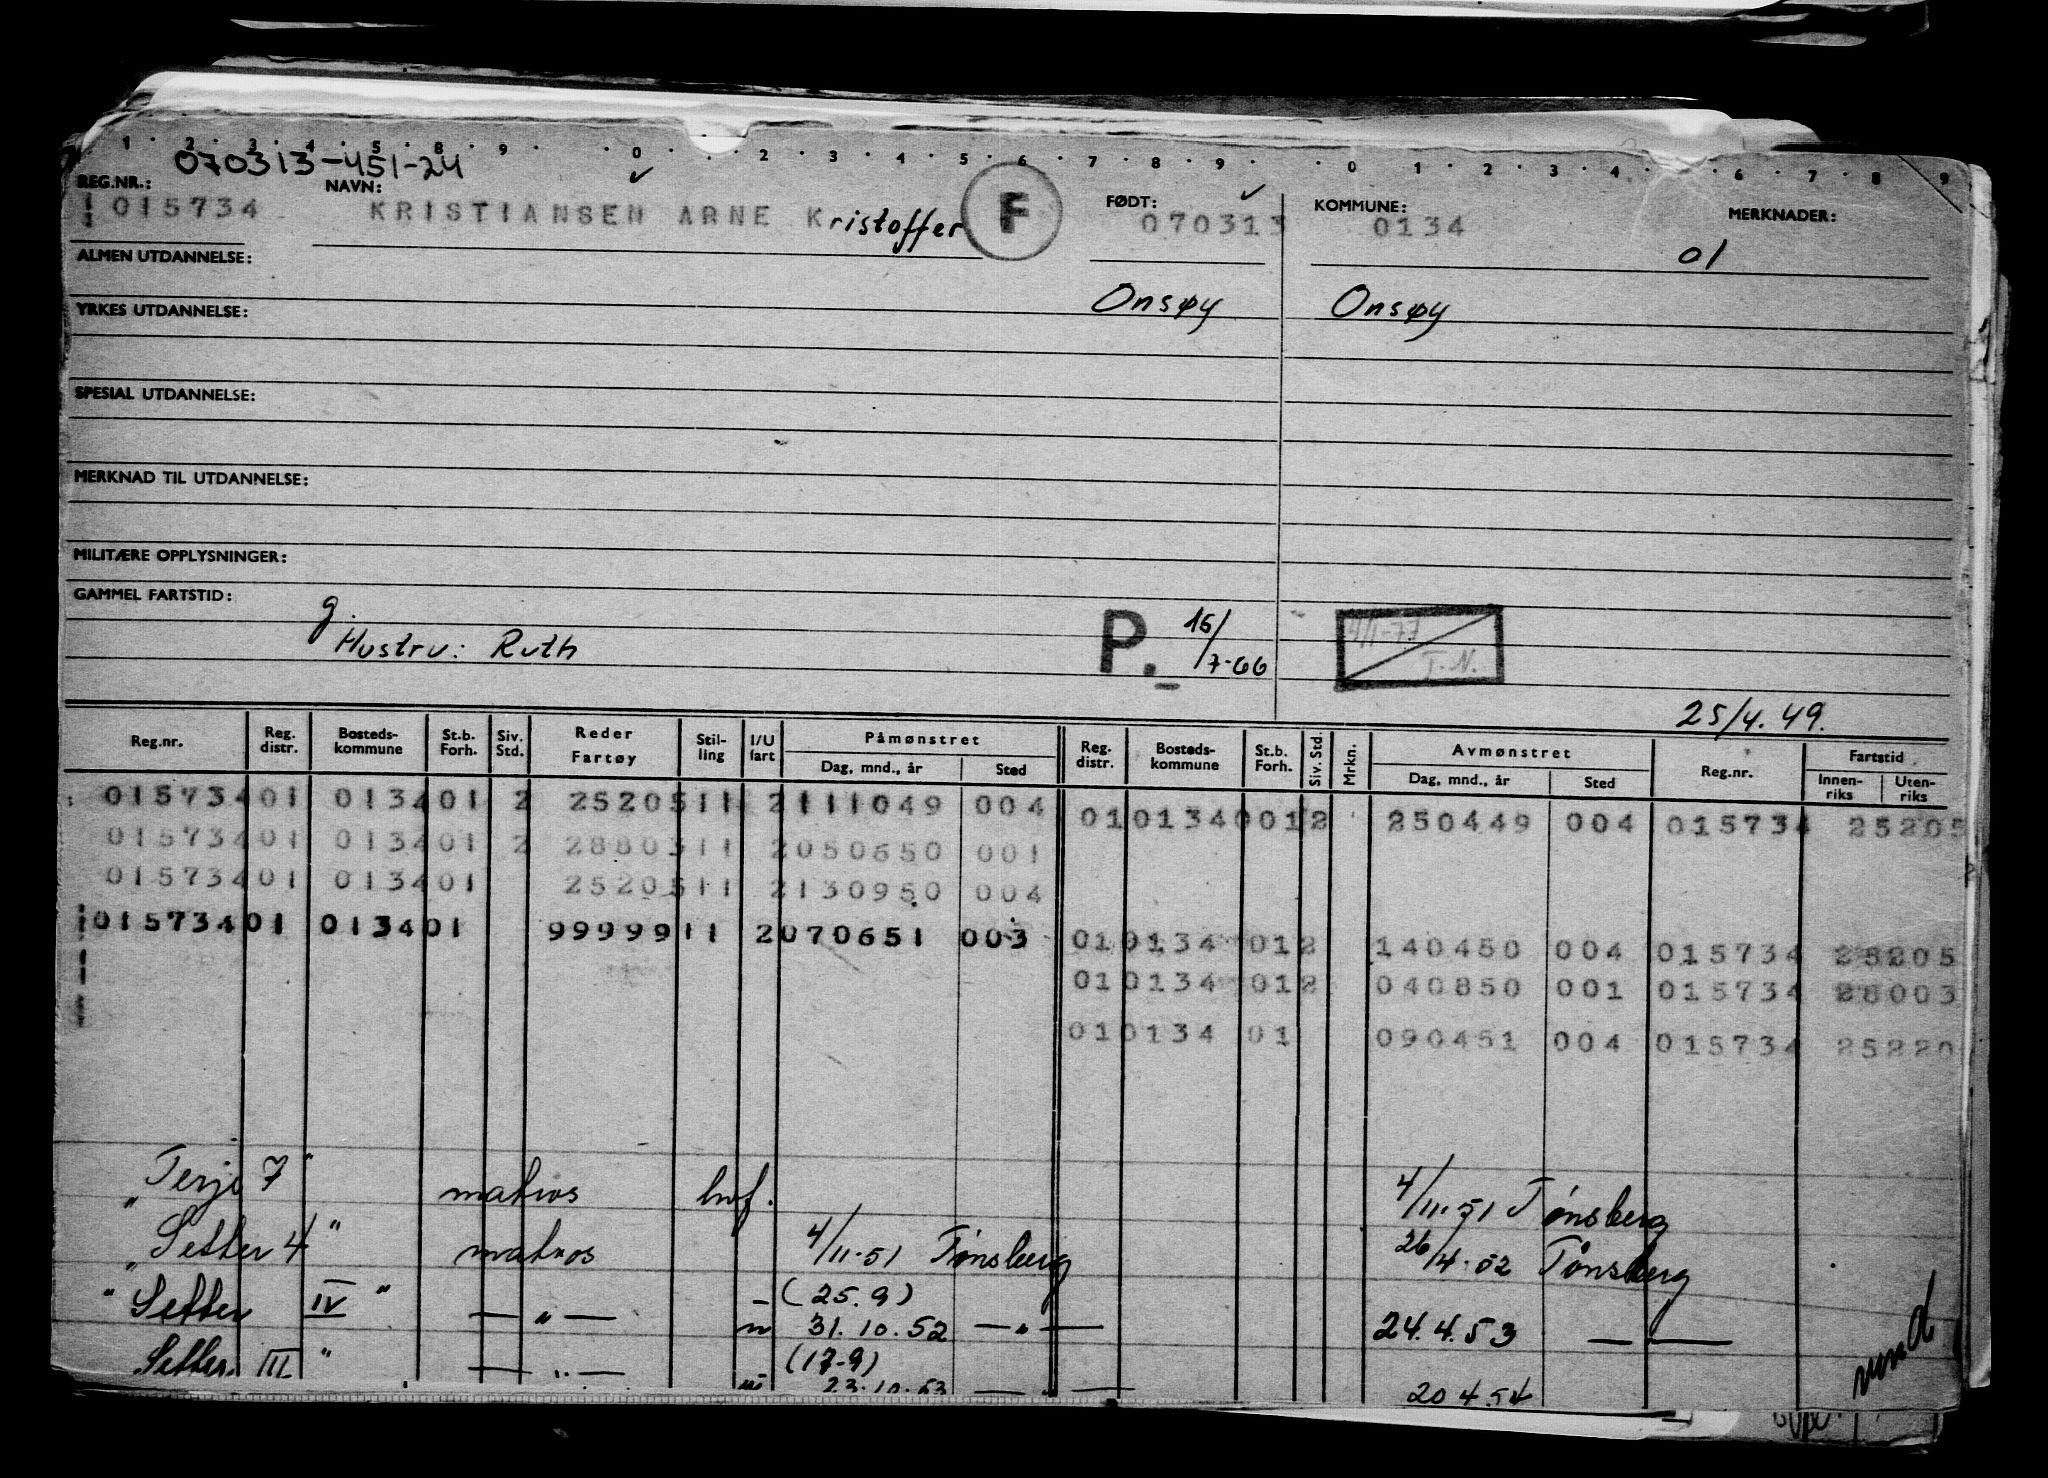 1 2 3 4 5 8 9 0 2 3 4 5 6 7 8 9 0 1 2 3 4 6 7 8 9
070313-451-24
REG.NR.: NAVN: FØDT: KOMMUNE: MERKNADER:
015734 KRISTIANSEN ARNE Kristoffer F 070313 0134
ALMEN UTDANNELSE: 01
YRKES UTDANNELSE: Onsøy Onsøy
SPESIAL UTDANNELSE:
MERKNAD TIL UTDANNELSE:
MILITÆRE OPPLYSNINGER:
GAMMEL FARTSTID: g.
Hustru: Ruth P. 15/7-66 4/1-77 T.N.
25/4.49.
Reg.nr. Reg. distr. Bosteds-kommune St.b. Forh. Siv. Std. Reder Fartøy Stil-ling I/U fart Påmønstret Dag, mnd., år Sted Reg. distr. Bosteds-kommune St.b. Forh. Siv. Std. Mrkn. Avmønstret Dag, mnd., år Sted Reg.nr. Fartstid Innen-riks Uten-riks
015734 01 0134 01 2 25205 11 2 111049 004 01 0134 001 2 250449 004 015734 25205
015734 01 0134 01 2 28803 11 2 050650 001
015734 01 0134 01 25205 11 2 130950 004
015734 01 0134 01 99999 11 2 070651 003 01 0134 01 2 140450 004 015734 25205
01 0134 01 2 040850 001 015734 28003
01 0134 01 090451 004 015734 25220
"Terje 7" matros hvf. 4/11.51 Tønsberg
"Setter 4" matros 4/11.51 Tønsberg 26/4.52 Tønsberg
"Setter IV" — " — (25.9) 31.10.52 — " — 24.4.53 — —
Setter III" — " — (17-9) 23.10.53 — " — 20 4.54
vend